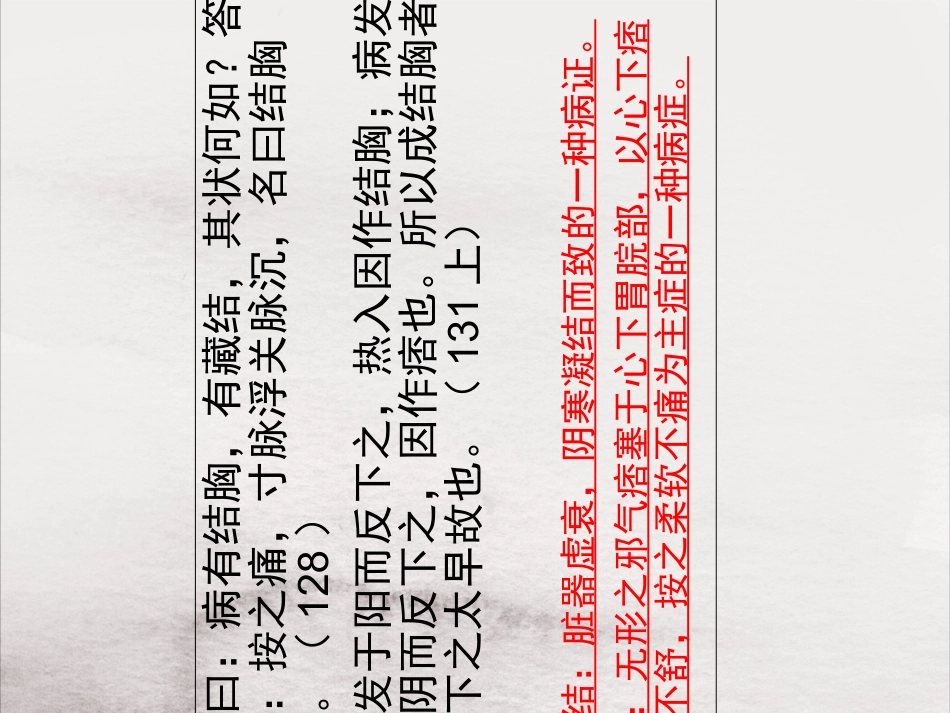 曰：病有结胸，有藏结，其状何如？答
：按之痛，寸脉浮关脉沉，名曰结胸
。（128）
发于阳而反下之，热入因作结胸；病发
阴而反下之，因作痞也。所以成结胸者
下之太早故也。（131上）
结：脏器虚衰，阴寒凝结而致的一种病证。
：无形之邪气痞塞于心下胃脘部，以心下痞
不舒，按之柔软不痛为主症的一种病症。